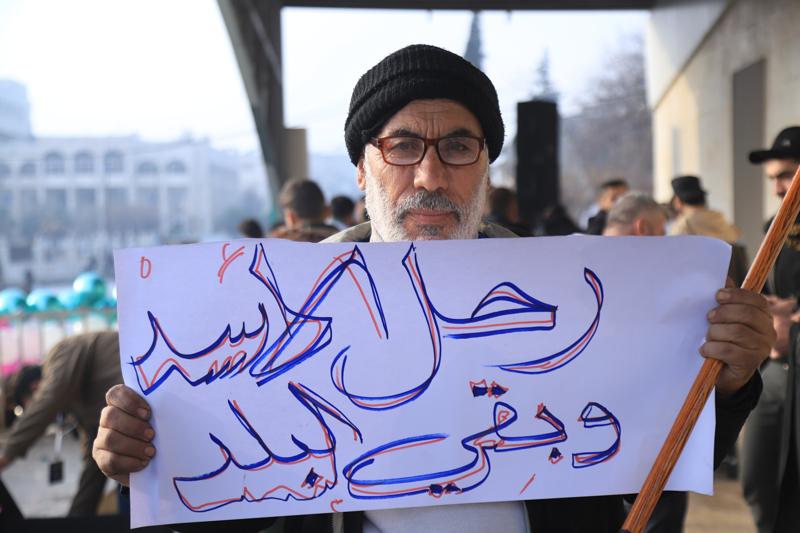 رحل الاسد
وبقي البلد